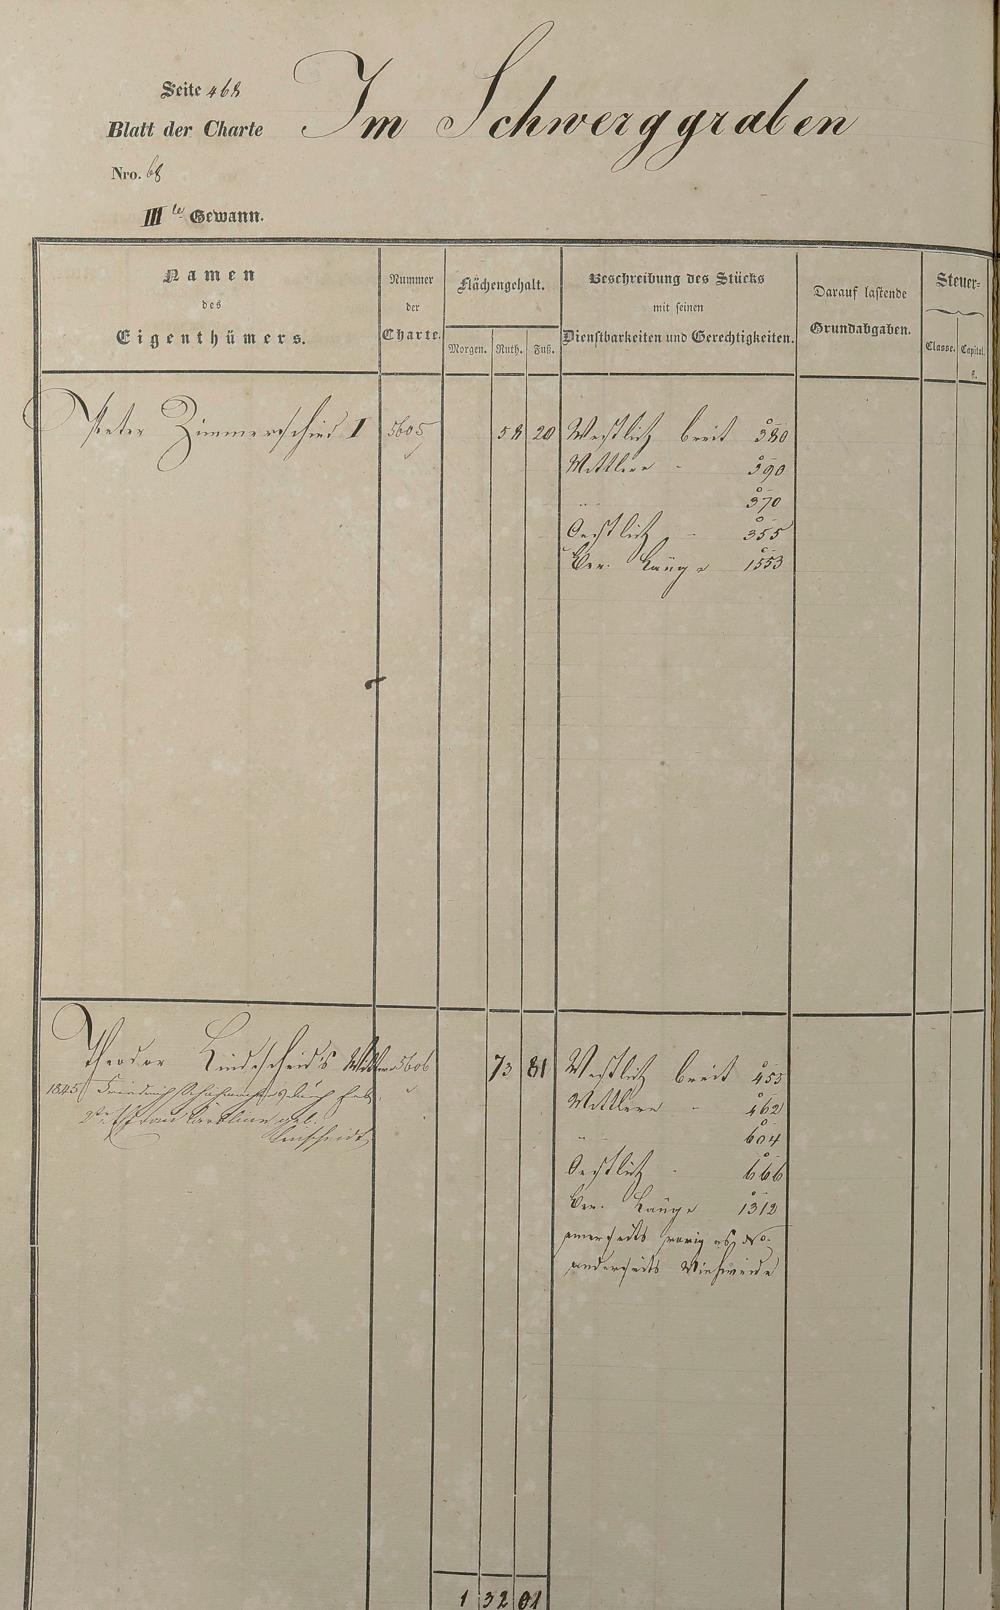 Seite 468
Im Schwerggraben
Blatt der Charte
Nro. 68
III te Gewann.
Namen
des
Eigenthümers.
Nummer
der
Charte.
Flächengehalt.
Morgen. Ruth. Fuß.
Beschreibung des Stücks
mit seinen
Dienstbarkeiten und Gerechtigkeiten.
Darauf lastende
Grundabgaben.
Steuer-
Classe. Capital.
Peter Zimmerschied I 5605 58 20 Westlich breit 380
Mittlere - 390
" 370
Oestlich - 355
Ver. Länge 1553
Theodor Lindscheid's Wittwe 5606 73 81 Westlich breit 455
1845 Friedrich
Mittlere - 462
2te Frau Caroline geb.
Linscheidt
" 604
Oestlich - 666
Ver. Länge 1312
einerseits voriges No.
anderseits Viehweide
1 32 01